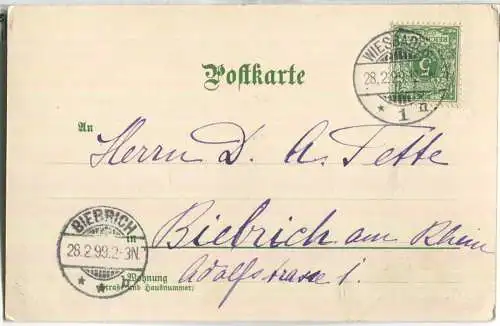 Postkarte
WIESBADEN
28.2.99.
* 1 n.
REICHSPOST
5
An
Herrn D. A. Tette
BIEBRICH
28.2.99.2-3N.
* * b
in Biebrich am Rhein
Wohnung Adolfstrasse 1.
(Straße und Hausnummer)